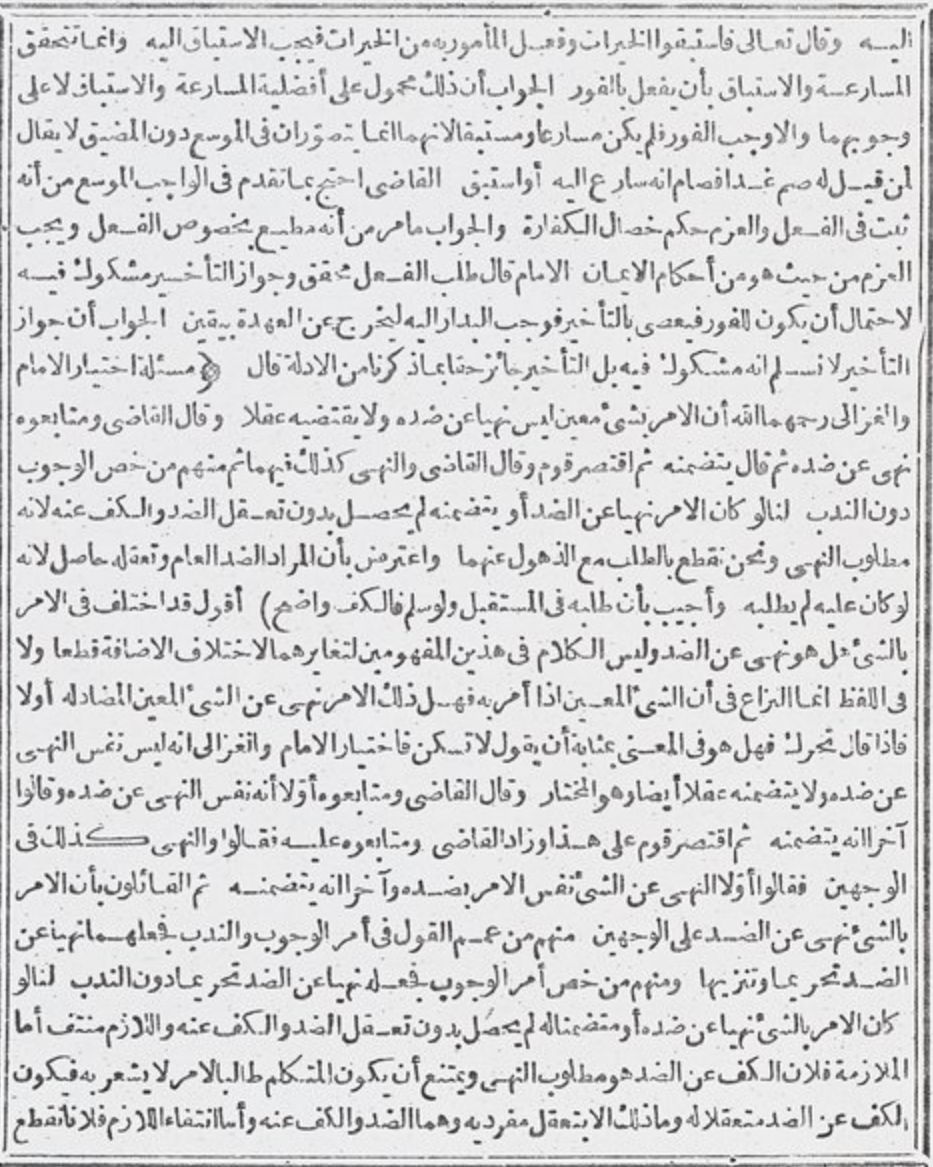 اليه وقال تعالى فاستبقوا الخيرات وفعل المأمور به من الخيرات فيجب الاستباق اليه وانما تتحقق
المسارعة والاستباق بأن يفعل بالفور الجواب أن ذلك محمول على أفضلية المسارعة والاستباق لا على
وجوبهما والا وجب الفور فلم يكن مسارعا ومستبقا لانهما انما يتصوران فى الموسع دون المضيق لا يقال
لمن قيل له صم غدا فصام انه سارع اليه أو استبق القاضى احتج بما تقدم فى الواجب الموسع من أنه
ثبت فى الفعل والعزم حكم خصال الكفارة والجواب ما مر من أنه مطيع بخصوص الفعل ويجب
العزم من حيث هو من أحكام الايمان الامام قال طلب الفعل محقق وجواز التأخير مشكوك فيه
لاحتمال أن يكون للفور فيعصى بالتأخير فوجب البدار اليه ليخرج عن العهدة بيقين الجواب أن جواز
التأخير لا نسلم انه مشكوك فيه بل التأخير جائز حقا بما ذكرنا من الادلة قال ﴿مسئلة اختيار الامام
والغزالى رحمهما الله أن الامر بشئ معين ليس نهيا عن ضده ولا يقتضيه عقلا وقال القاضى ومتابعوه
نهى عن ضده ثم قال يتضمنه ثم اقتصر قوم وقال القاضى والنهى كذلك فيهما ثم منهم من خص الوجوب
دون الندب لنا لو كان الامر نهيا عن الضد أو يتضمنه لم يحصل بدون تعقل الضد والكف عنه لانه
مطلوب النهى ونحن نقطع بالطلب مع الذهول عنهما واعترض بأن المراد الضد العام وتعقله حاصل لانه
لو كان عليه لم يطلبه وأجيب بأن طلبه فى المستقبل ولو سلم فالكف واضح) أقول قد اختلف فى الامر
بالشئ هل هو نهى عن الضد وليس الكلام فى هذين المفهومين لتغايرهما لاختلاف الاضافة قطعا ولا
فى اللفظ انما النزاع فى أن الشئ المعين اذا أمر به فهل ذلك الامر نهى عن الشئ المعين المضاد له أو لا
فاذا قال تحرك فهل هو فى المعنى بمثابة أن يقول لا تسكن فاختيار الامام والغزالى انه ليس نفس النهى
عن ضده ولا يتضمنه عقلا أيضا وهو المختار وقال القاضى ومتابعوه أولا أنه نفس النهى عن ضده وقالوا
آخرا انه يتضمنه ثم اقتصر قوم على هذا وزاد القاضى ومتابعوه عليه فقالوا والنهى كذلك فى
الوجهين فقالوا أولا النهى عن الشئ نفس الامر بضده وآخرا انه يتضمنه ثم القائلون بأن الامر
بالشئ نهى عن الضد على الوجهين منهم من عمم القول فى أمر الوجوب والندب فجعلهما نهيا عن
الضد تحريما وتنزيها ومنهم من خص أمر الوجوب فجعله نهيا عن الضد تحريما دون الندب لنا لو
كان الامر بالشئ نهيا عن ضده أو متضمنا له لم يحصل بدون تعقل الضد والكف عنه واللازم منتف أما
الملازمة فلان الكف عن الضد هو مطلوب النهى ويمتنع أن يكون المتكلم طالبا لامر لا يشعر به فيكون
الكف عن الضد متعقلا له وما ذلك الا بتعقل مفرديه وهما الضد والكف عنه وأما انتفاء اللازم فلانا نقطع